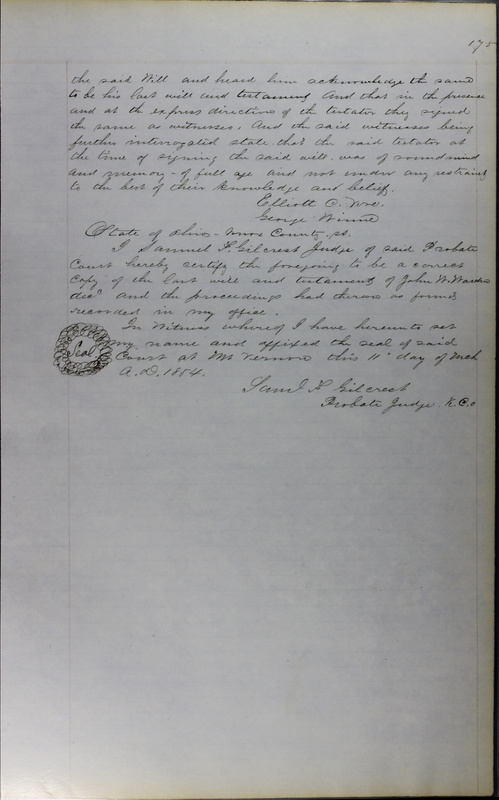 175
the said Will and heard him acknowledge the same
to be his last will and testament And that in the presence
and at the express directions of the testator they signed
the same as witnesses, And the said witnesses being
further interrogated state that the said testator at
the time of signing the said will was of sound mind
and memory - of full age and not under any restraint
to the best of their knowledge and belief.
Elliott C.
George Winne
State of Ohio - Knox County, ss.
I Samuel F. Gilcrest Judge of said Probate
Court hereby certify the foregoing to be a correct
Copy of the last will and testament of John W.
decd and the proceedings had thereon as found
recorded in my office.
In Witness whereof I have hereunto set
my name and affixed the seal of said
Seal
Court at Mt Vernon this 11" day of Mch
A.D. 1884.
Saml F Gilcrest
Probate Judge. K.C.O